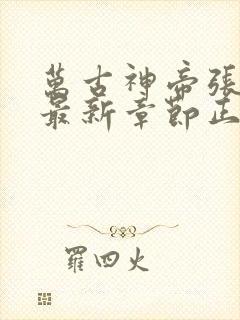 萬古神帝張
最新章節正
羅四火